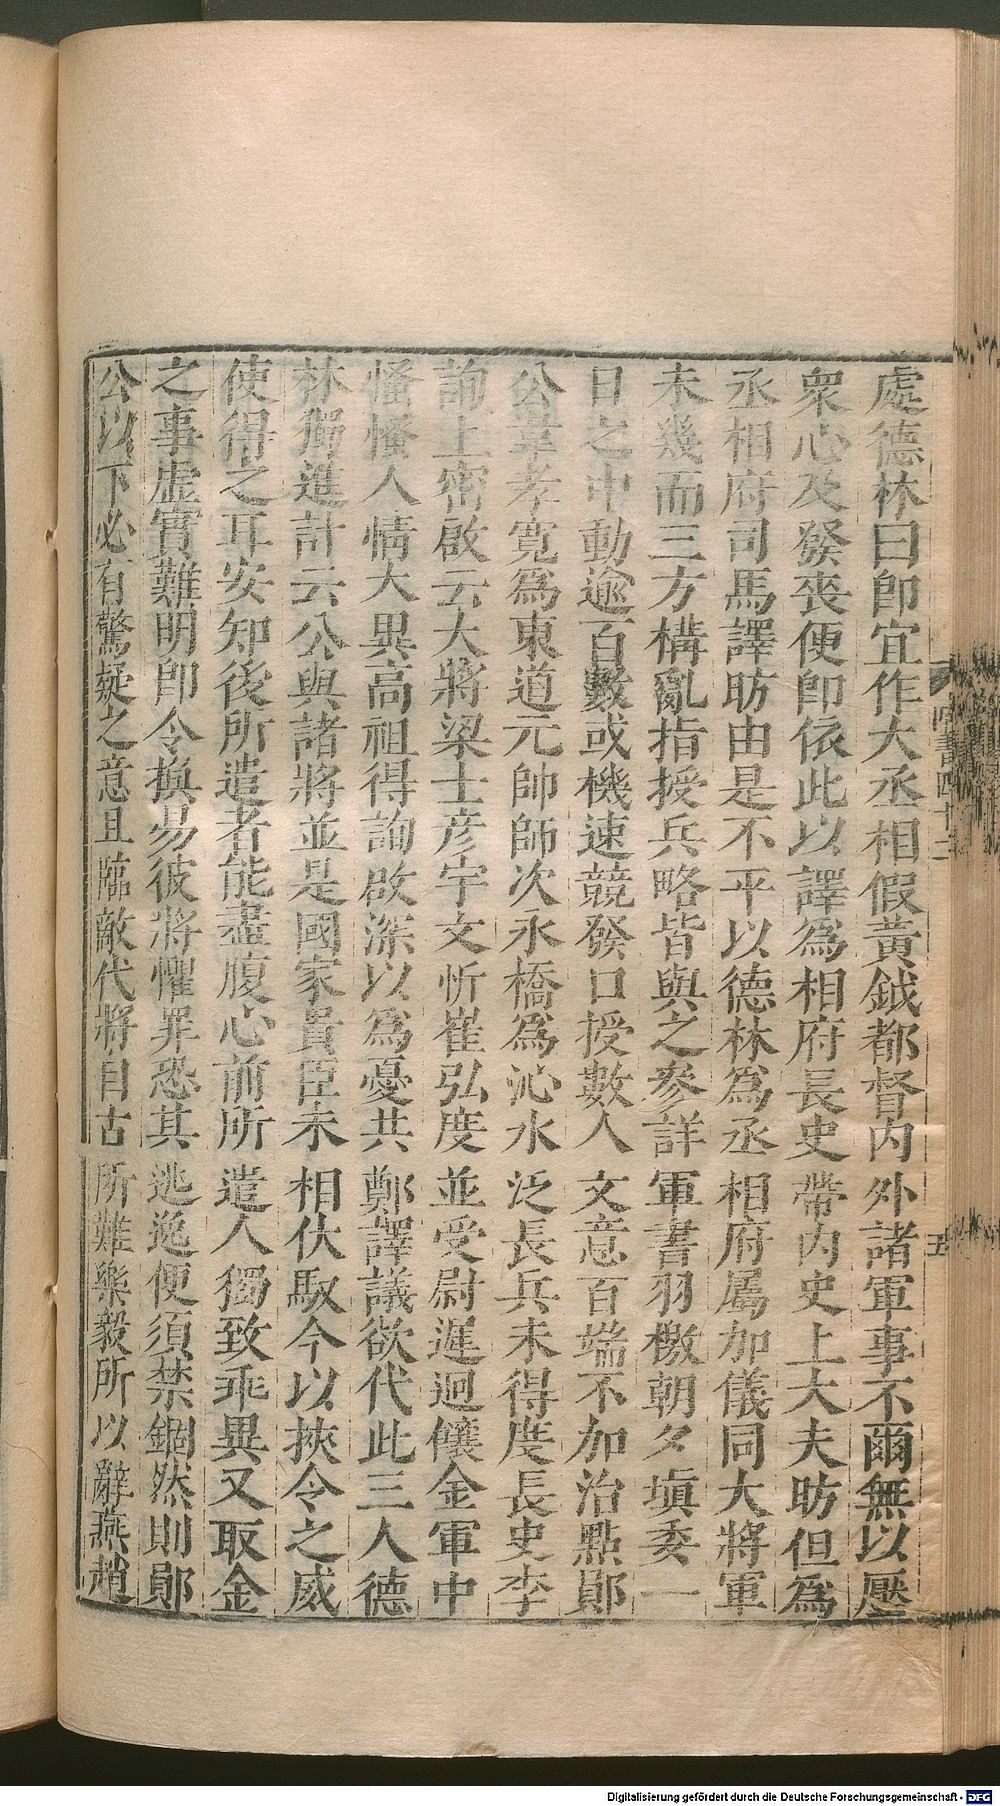 處德林曰即宜作大丞相假黃鉞都督内外諸軍事不爾無以壓
衆心及發喪便即依此以譯爲相府長史帶内史上大夫昉但爲
丞相府司馬譯昉由是不平以德林爲丞相府屬加儀同大將軍
未幾而三方構亂指授兵略皆與之參詳軍書羽檄朝夕塡委一
日之中動逾百數或機速競發口授數人文意百端不加治點鄖
公韋孝寛爲東道元帥師次永橋爲沁水泛長兵未得度長史李
詢上密啟云大將梁士彦宇文忻崔弘度並受尉遲迥儴金軍中
慅慅人情大異高祖得詢啟深以爲憂共鄭譯議欲代此三人德
林獨進計云公與諸將並是國家貴臣未相伏馭今以挾令之威
使得之耳安知後所遣者能盡腹心前所遣人獨致乖異又取金
之事虚實難明即令換易彼將懼罪恐其逃逸便須禁錮然則鄖
公以下必有驚疑之意且臨敵代將自古所難樂毅所以辭燕趙
五
Digitalisierung gefördert durch die Deutsche Forschungsgemeinschaft - DFG